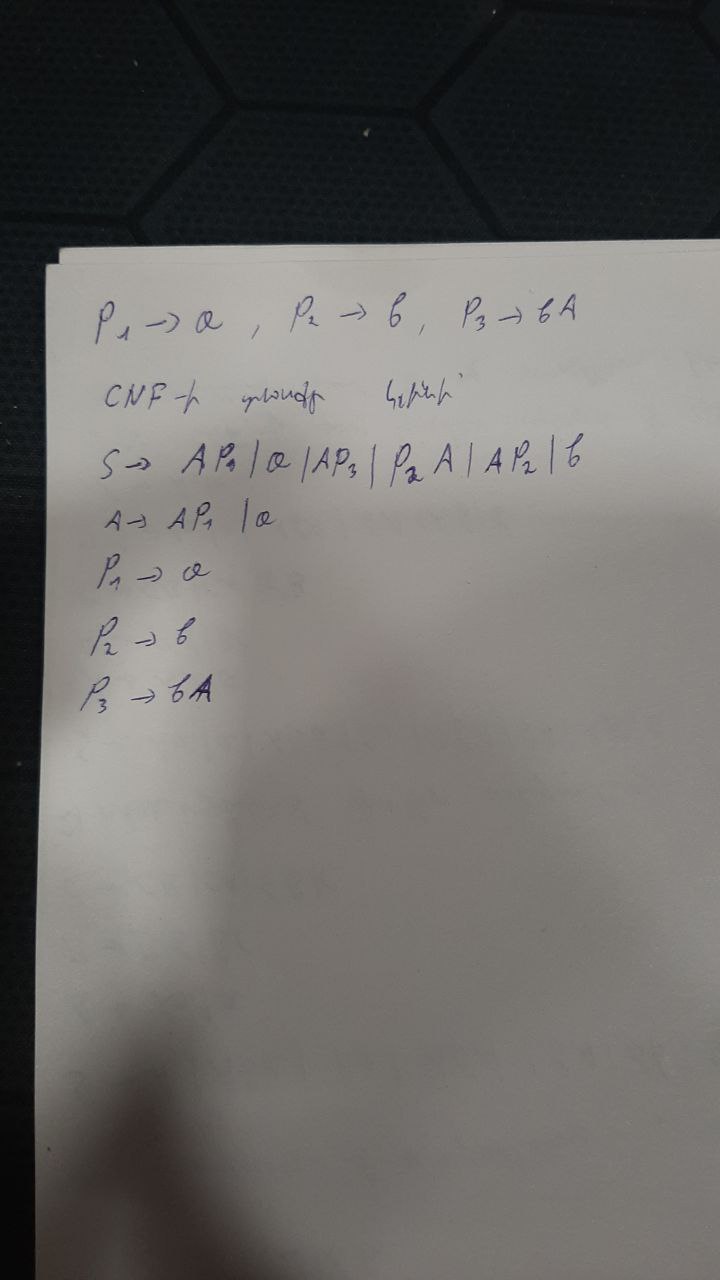 P₁ → a , P₂ → b , P₃ → bA
CNF-ի տեսքը կլինի՝
S → AP₁ | a | AP₃ | P₂ A | AP₂ | b
A → AP₁ | a
P₁ → a
P₂ → b
P₃ → bA